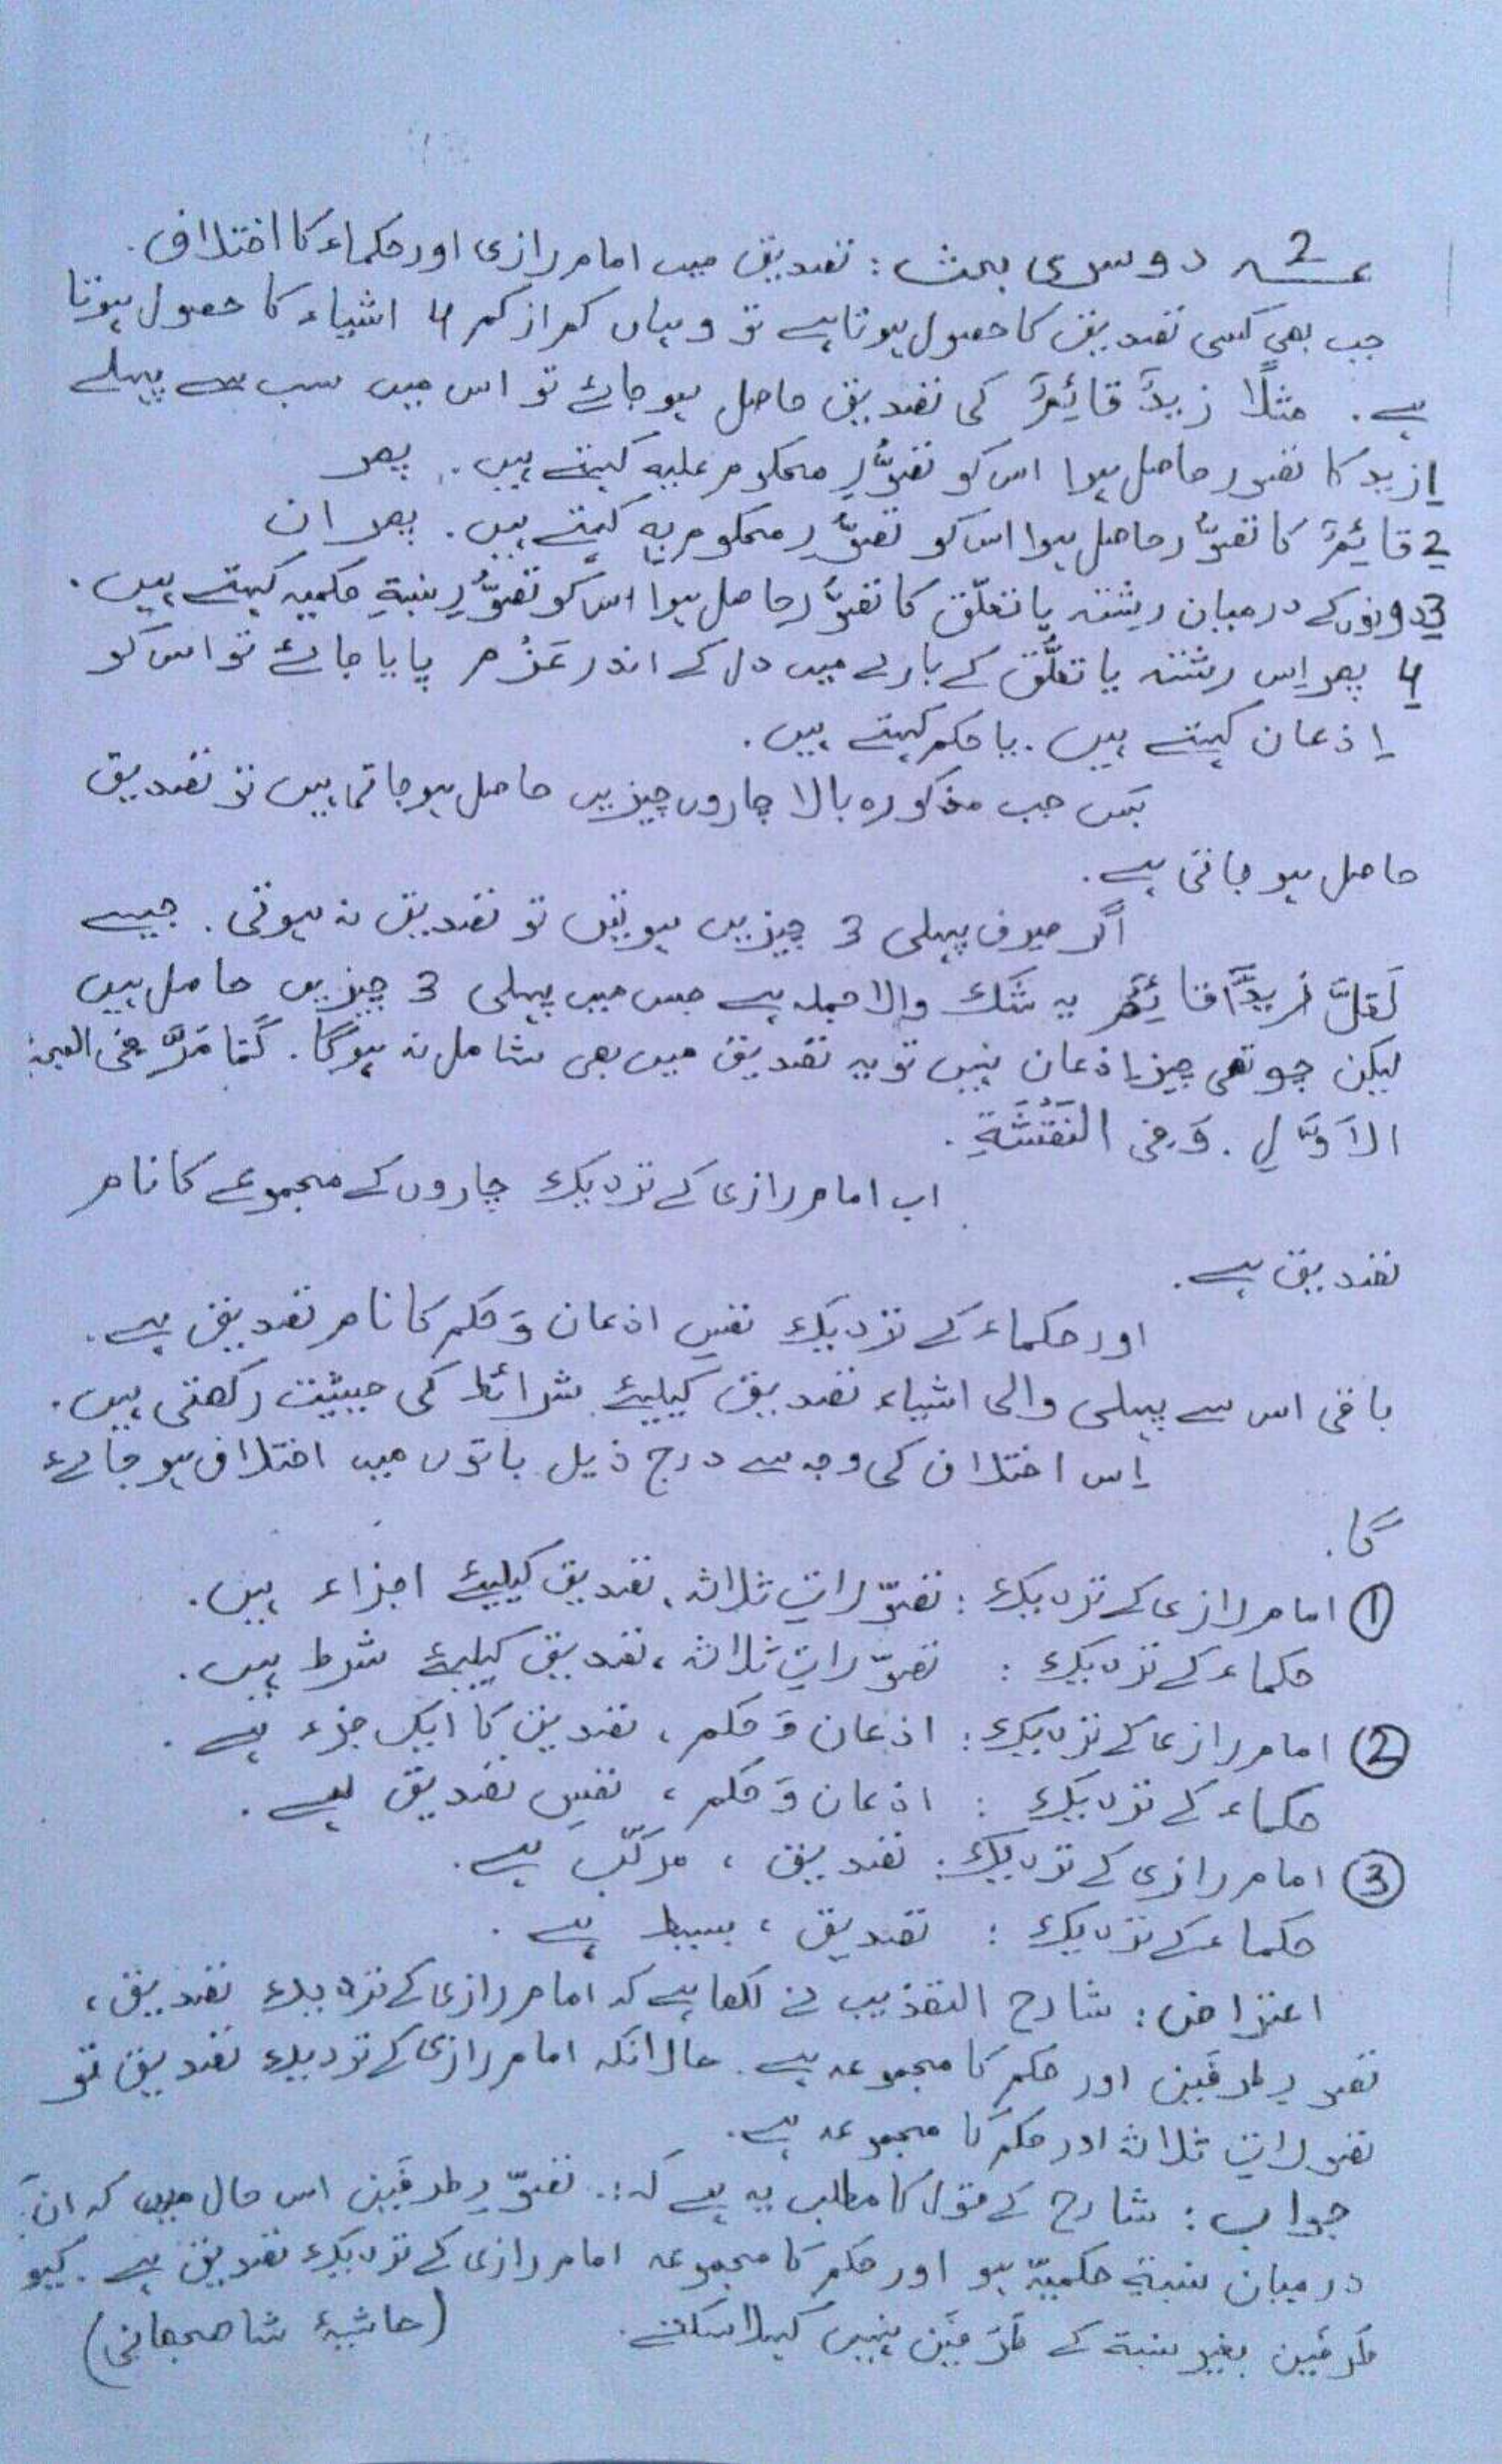 2 دوسری بحث: تصدیق میں امام رازی اور حکماء کا اختلاف.
جب بھی کسی تصدیق کا حصول ہوتا ہے تو وہاں کم از کم 4 اشیاء کا حصول ہوتا
ہے. مثلًا زیدٌ قائِمٌ کی تصدیق حاصل ہو جائے تو اس میں سب سے پہلے
1 زید کا تصور حاصل ہوا اس کو تصوُّرِ محکوم علیہ کہتے ہیں. پھر
2 قائِمٌ کا تصوُّر حاصل ہوا اس کو تصوُّرِ محکوم بہ کہتے ہیں. پھر ان
3 دونوں کے درمیان رشتہ یا تعلّق کا تصوُّر حاصل ہوا اس کو تصوُّرِ نسبۃِ حکمیہ کہتے ہیں.
4 پھر اِس رشتہ یا تعلُّق کے بارے میں دل کے اندر عَزْم پایا جائے تو اس کو
اِذعان کہتے ہیں. یا حکم کہتے ہیں.
بَس جب مذکورہ بالا چاروں چیزیں حاصل ہو جاتی ہیں تو تصدیق
حاصل ہو جاتی ہے.
اگر صرف پہلی 3 چیزیں ہوتیں تو تصدیق نہ ہوتی. جیسے
لَعَلَّ زیدًا قائِمٌ یہ شک والا جملہ ہے جس میں پہلی 3 چیزیں حاصل ہیں
لیکن چوتھی چیز اِذعان نہیں تو یہ تصدیق میں بھی شامل نہ ہوگا. کَمَا مَرَّ فی البحث
الاَوَّلِ. وَ فی النَقْشَةِ.
اب امام رازی کے نزدیک چاروں کے مجموعے کا نام
تصدیق ہے.
اور حکماء کے نزدیک نفسِ اذعان وَ حکم کا نام تصدیق ہے.
باقی اس سے پہلی والی اشیاء تصدیق کیلیئے شرائط کی حیثیت رکھتی ہیں.
اِس اختلاف کی وجہ سے درج ذیل باتوں میں اختلاف ہو جائے
گا.
① امام رازی کے نزدیک: تصوّراتِ ثلاثہ، تصدیق کیلیئے اجزاء ہیں.
حکماء کے نزدیک: تصوّراتِ ثلاثہ، تصدیق کیلیئے شرط ہیں.
② امام رازی کے نزدیک: اذعان وَ حکم، تصدیق کا ایک جزء ہے.
حکماء کے نزدیک: اذعان وَ حکم، نفسِ تصدیق ہے.
③ امام رازی کے نزدیک: تصدیق، مرکّب ہے.
حکماء کے نزدیک: تصدیق، بسیط ہے.
اعتراض: شارح التہذیب نے لکھا ہے کہ امام رازی کے نزدیک تصدیق،
تصورِ طرفَین اور حکم کا مجموعہ ہے. حالانکہ امام رازی کے نزدیک تصدیق تو
تصوراتِ ثلاثہ اور حکم کا مجموعہ ہے.
جواب: شارح کے قول کا مطلب یہ ہے کہ: تصوّرِ طرفَین اس حال میں کہ ان کے
درمیان نسبۃِ حکمیّہ ہو اور حکم کا مجموعہ امام رازی کے نزدیک تصدیق ہے. کیو
طرفَین بغیر نسبۃ کے طَرَفَین نہیں کہلا سکتے. (حاشیۂ شاھجھانی)